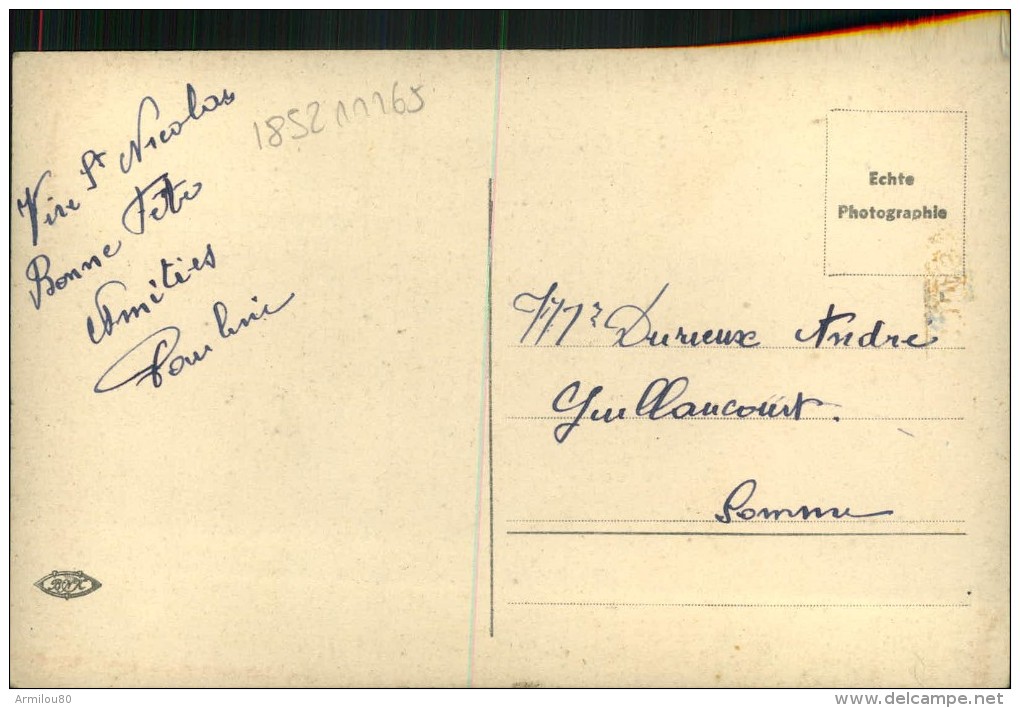 1852 11165
Vive St Nicolas
Bonne Fête
Amitiés
Pauline
Echte
Photographie
Mr Durieux Andre
Guillaucourt.
Somme
Armilou80
www.delcampe.net